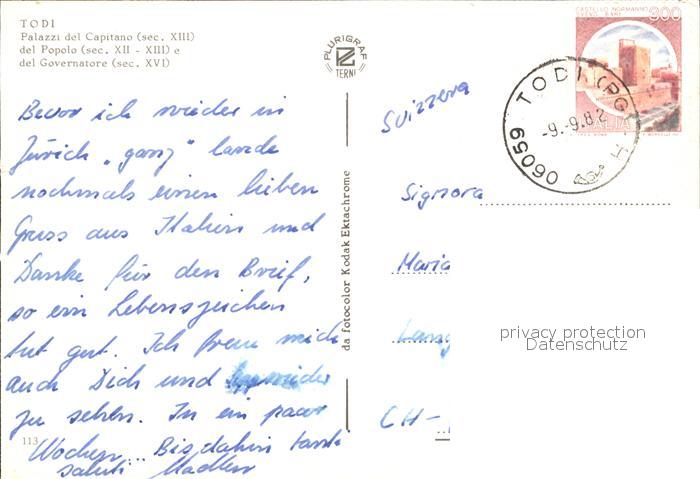 TODI
Palazzi del Capitano (sec. XIII)
del Popolo (sec. XII - XIII) e
del Governatore (sec. XVI)
Bevor ich wieder in
Zürich „ganz" lande
nochmals einen lieben
Gruss aus Italien und
Danke für den Brief,
so ein Lebenszeichen
tut gut. Ich freue mich
auch Dich und wieder
zu sehen. In ein paar
Wochen... Bis dahin tanti
saluti Madlen
113
PLURIGRAF
TERNI
da fotocolor Kodak Ektachrome
CASTELLO NORMANNO
SVEVO. BARI
300
ITALIA
06059 TODI (PG)
-9.-9.82
H
Svizzera
Signora
Maria
Lang
CH-
privacy protection
Datenschutz